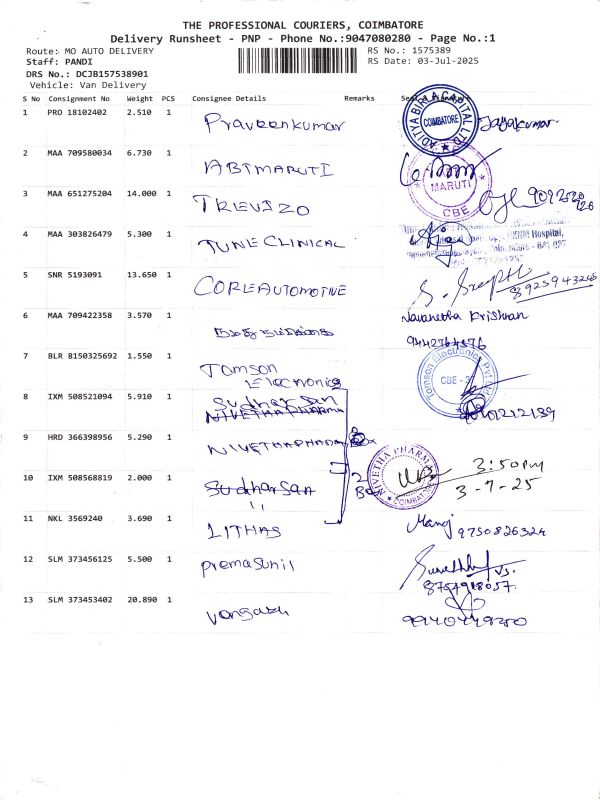 THE PROFESSIONAL COURIERS, COIMBATORE
Delivery Runsheet - PNP - Phone No.:9047080280 - Page No.:1
Route: MO AUTO DELIVERY RS No.: 1575389
Staff: PANDI RS Date: 03-Jul-2025
DRS No.: DCJB157538901
Vehicle: Van Delivery
S No Consignment No Weight PCS Consignee Details Remarks
1 PRO 18102402 2.510 1 Praveenkumar ADITYA BIRLA CAPITAL LTD COIMBATORE Jayakumar
2 MAA 709580034 6.730 1 ABTMARUTI MARUTI CBE
3 MAA 651275204 14.000 1 TREVIZO
4 MAA 303826479 5.300 1 TUNECLINICAL Hospital,
5 SNR 5193091 13.650 1 COREAUTOMOTIVE 8925943246
6 MAA 709422358 3.570 1 Navaneetha Krishnan
9442764376
7 BLR 8150325692 1.550 1 Tomson Electronics Tomson Electronics Pvt Ltd CBE
8 IXM 508521094 5.910 1 Sudharsan
NIVETHA Pharma
9 HRD 366398956 5.290 1 NIVETHAPHARMA Box
10 IXM 508568819 2.000 1 Sudharsan 2 Box NIVETHA PHARMA COIMBATORE 3:50pm
3-7-25
11 NKL 3569240 3.690 1 LITHAS Manoj 9750826324
12 SLM 373456125 5.500 1 premasunil
8754918057
13 SLM 373453402 20.890 1
9940449250